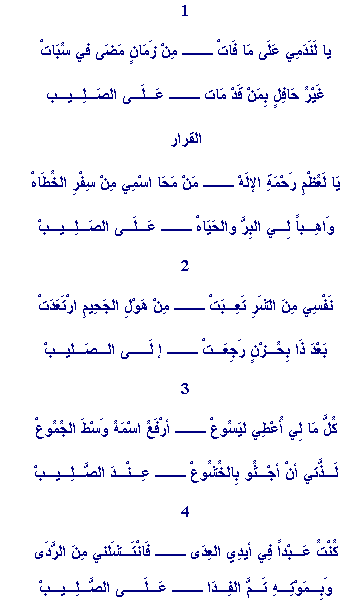 1
يا لَنَدَمِي عَلَى مَا فَاتْ ــــــ مِنْ زَمَانٍ مَضَى في سُبَاتْ
غَيْرُ حَافِلٍ بِمَنْ قَدْ مَات ــــــ عَــلَــى الصَــلِــيــب
القرار
يَا لَعُظْمِ رَحْمَةِ الإلَهْ ــــــ مَنْ مَحَا اسْمِي مِنْ سِفْرِ الخُطَاهْ
وَاهِــباً لِــي البِرَّ والحَيَاهْ ــــــ عَــلَــى الصَــلِــيــبْ
2
نَفْسِي مِنَ الشَرِ تَعِــبَتْ ــــــ مِنْ هَوْلِ الجَحِيمِ ارْتَعَدَتْ
بَعْدَ ذَا بِحُــزْنٍ رَجِعَــتْ ــــــ إ لَــــى الــصَــليــبْ
3
كُلَّ مَا لِي أُعْطِي ليَسُوعْ ــــــ أرْفَعُ اسْمَهُ وَسْطَ الجُمُوعْ
لَــذَّتي أنْ أجْــثُو بِالخُشُوعْ ــــــ عِــنْــدَ الصَّــلِــيــبْ
4
كُنْتُ عَــبْداً فِي أيدِي العِدَى ــــــ فَانْتَــشَلَني مِنَ الرَّدَى
وَبِــمَوْتِــهِ تَــمَّ الفِــدَا ــــــ عَــلَــى الصَّــلِــيــبْ